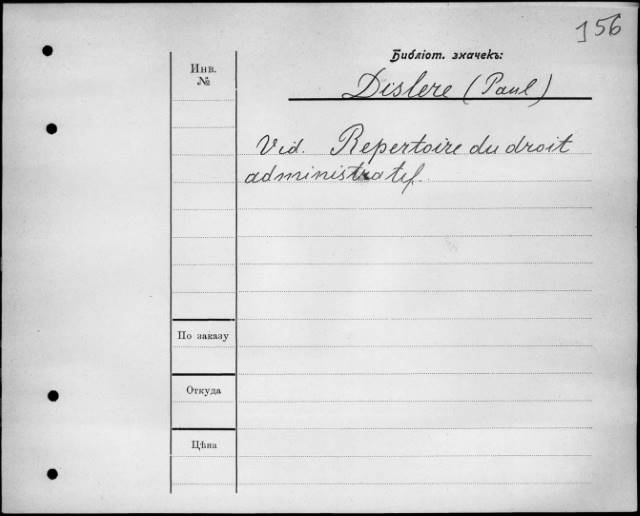 156
Библіот. значекъ:
Инв.
№
Dislere (Paul)
Vid. Repertoire du droit
administratif.
По заказу
Откуда
Цѣна